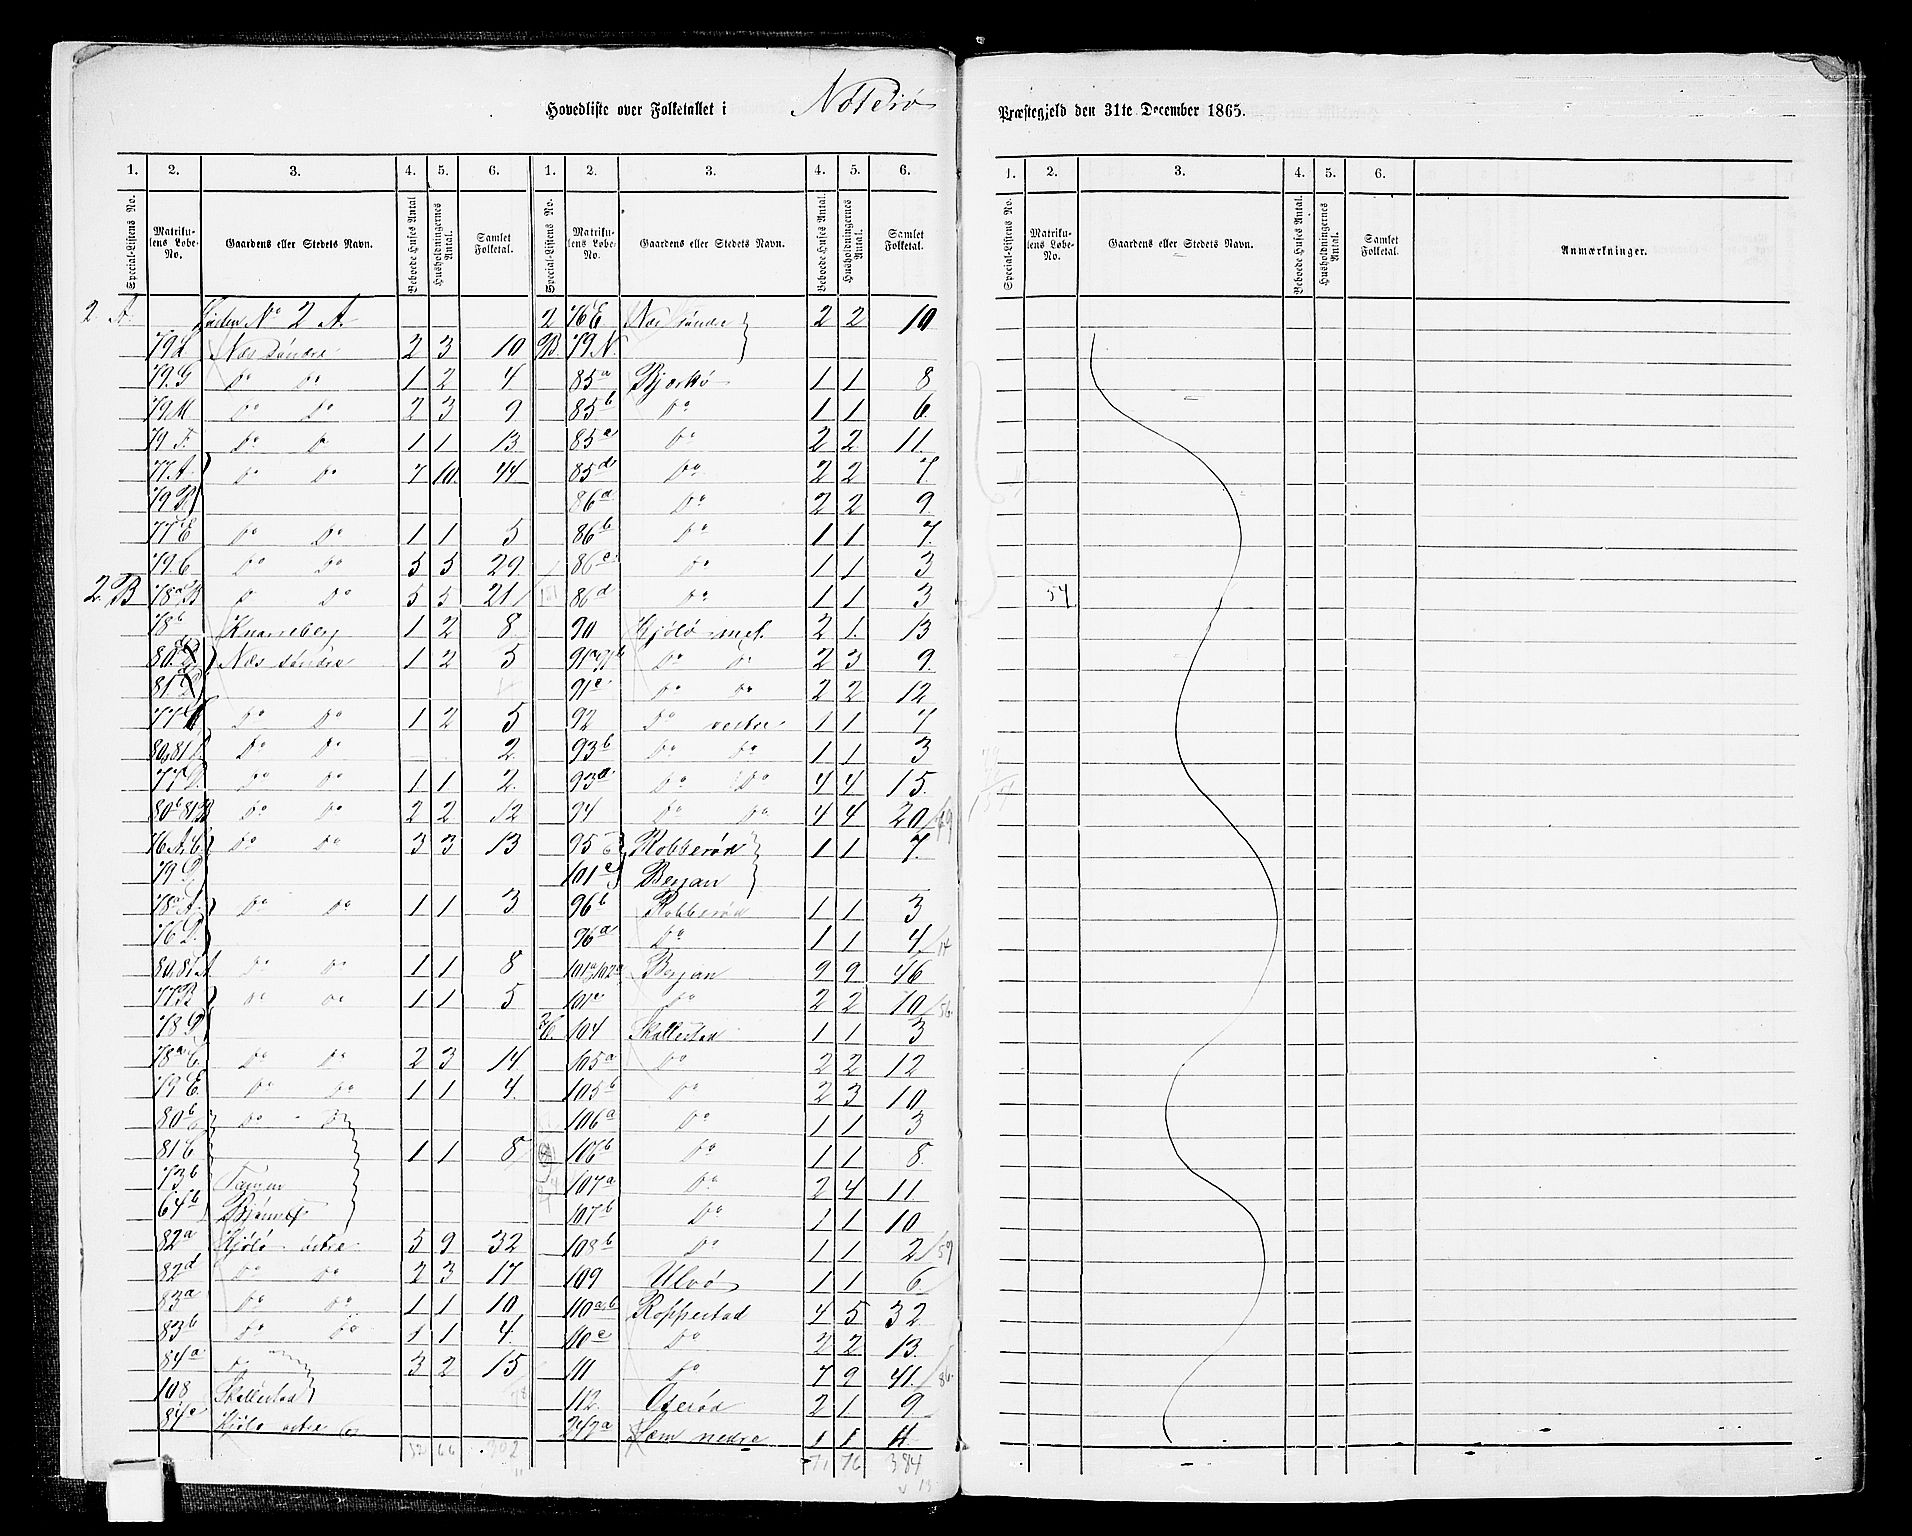 Hovedliste over Folketallet i Nøterø Præstegjeld den 31te December 1865.
1. 2. 3. 4. 5. 6. 1. 2. 3. 4. 5. 6.
Special-Listens No. Matrikulens Løbe-No. Gaardens eller Stedets Navn. Beboede Huses Antal. Husholdningernes Antal. Samlet Folketal. Special-Listens No. Matrikulens Løbe-No. Gaardens eller Stedets Navn. Beboede Huses Antal. Husholdningernes Antal. Samlet Folketal.
2. A. Listen No 2 A.
79 L Næs søndre 2 3 10
79. G Do Do 1 2 4
79 M Do Do 2 3 9
79 F. Do Do 1 1 13
77. A Do Do 7 10 44
79 B
77 E Do Do 1 1 5
79. C Do Do 5 5 29
2. B 78a B Do Do 5 5 21
78b Knarreberg 1 2 8
80. Næs søndre 1 2 5
81
77 Do Do 1 2 5
80,81 Do Do 2
77 D. Do Do 1 1 2
80b 81 B Do Do 2 2 12
76 A, C. Do Do 3 3 13
79 D
78a A. Do Do 1 1 3
76 D.
80,81 A Do Do 1 1 8
77 B Do Do 1 1 5
78 D
78a C Do Do 2 3 14
79 E. Do Do 1 1 4
80b Do Do
81 C 1 1 8
73b
64b
82a Kjølø østre 5 9 32
82d Do Do 2 3 17
83a Do Do 1 1 10
83b Do Do 1 1 4
84a Do 3 2 15
108 Skallestad
84c Kjølø østre
52 66 302
2 B. 76 E Næs søndre 2 2 10
79 N.
85a Bjerkø 1 1 8
85b Do 1 1 6
85c Do 2 2 11
85d Do 2 2 7
86a Do 2 2 9
86b Do 1 1 7
86c Do 1 1 3
86d Do 1 1 3
90 Kjølø mel. 2 1 13
91a 91b Do Do 2 3 9
91c Do Do 2 2 12
92 Do vestre 1 1 7
93b Do Do 1 1 3
93a Do Do 4 4 15
94 Do Do 4 4 20
95 Robberød 1 1 7
101c Berjan
96b Robberød 1 1 3
96a Do 1 1 4 14
101a, 102a Berjan 9 9 46
101c Do 2 2 10 56
2 C. 104 Skallestad 1 1 3
105a Do 2 2 12
105b Do 2 3 10
106a Do 1 1 3
106b Do 1 1 8
107a Do 2 4 11
107b Do 1 1 10
108b Do 1 1 2 59
109 Ulvø 1 1 6
110a, b Roppestad 4 5 32
110c Do 2 2 13
111 Do 7 9 41 86
112 Oserød 2 1 9
242a Sem nedre 1 1 4
71 76 384
1. 2. 3. 4. 5. 6.
Special-Listens No. Matrikulens Løbe-No. Gaardens eller Stedets Navn. Beboede Huses Antal. Husholdningernes Antal. Samlet Folketal. Anmærkninger.
54